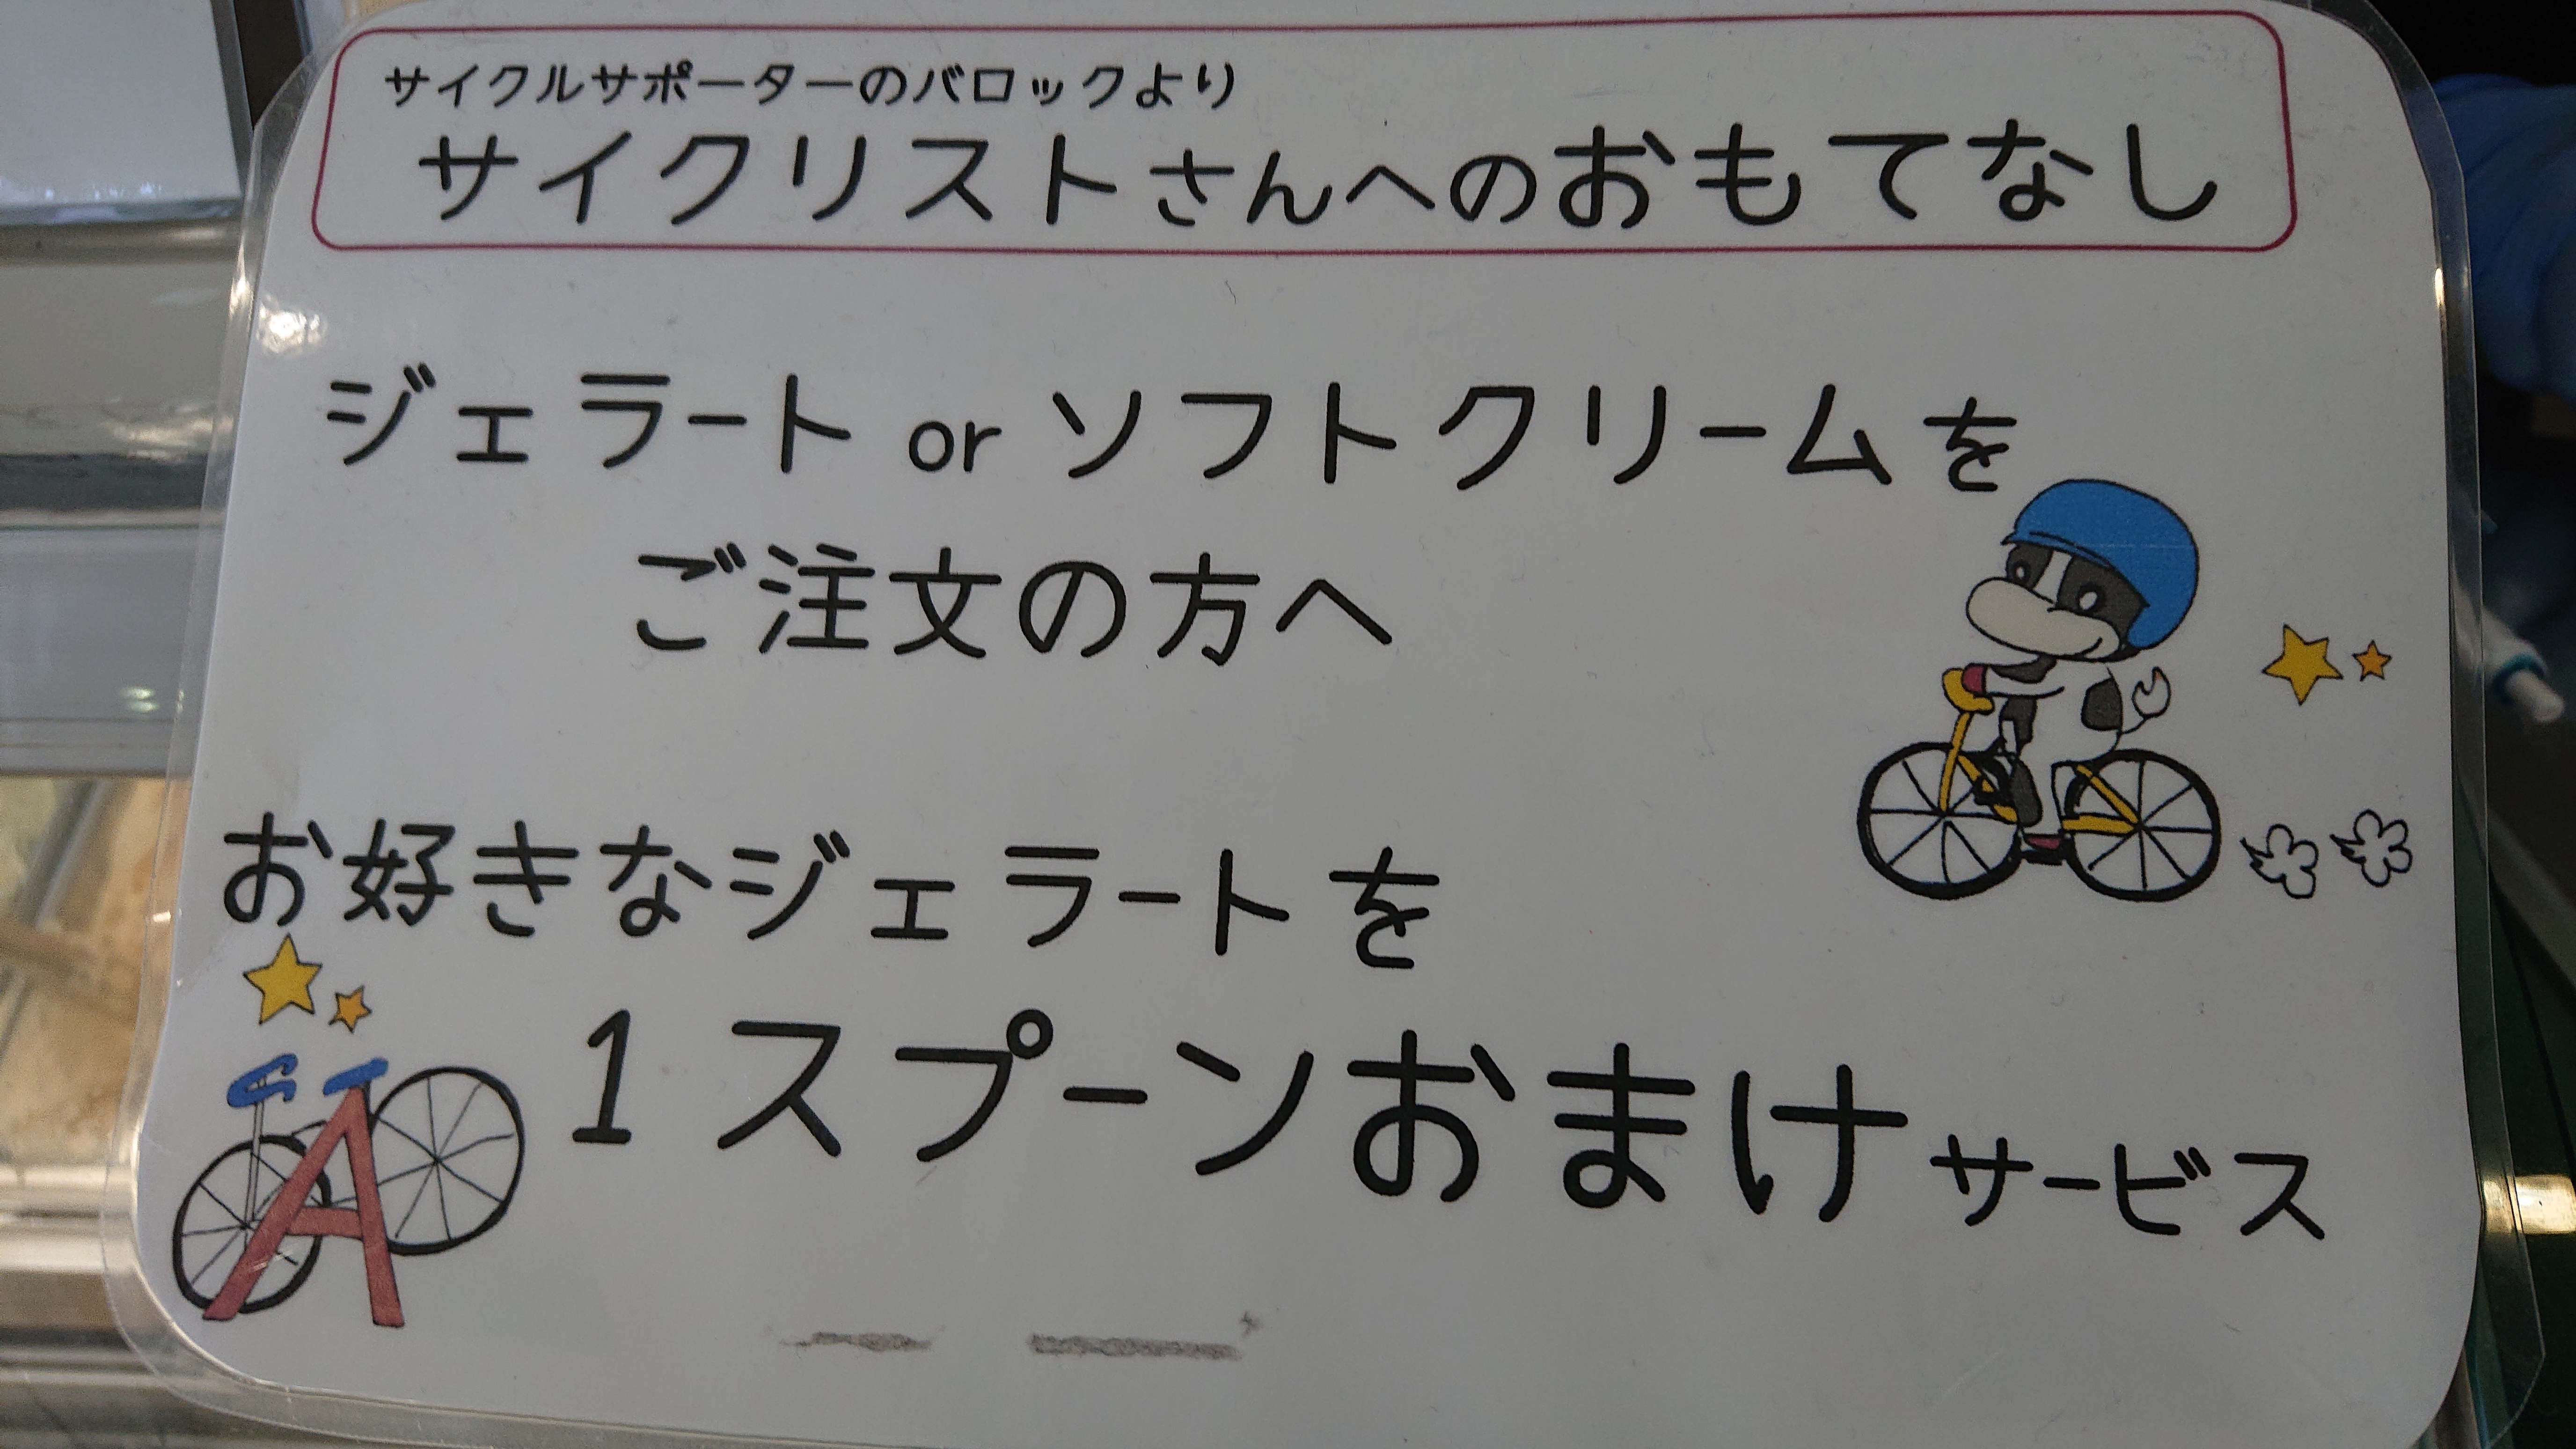 サイクルサポーターのバロックより
サイクリストさんへのおもてなし
ジェラート or ソフトクリームを
ご注文の方へ
お好きなジェラートを
1 スプーンおまけサービス
A